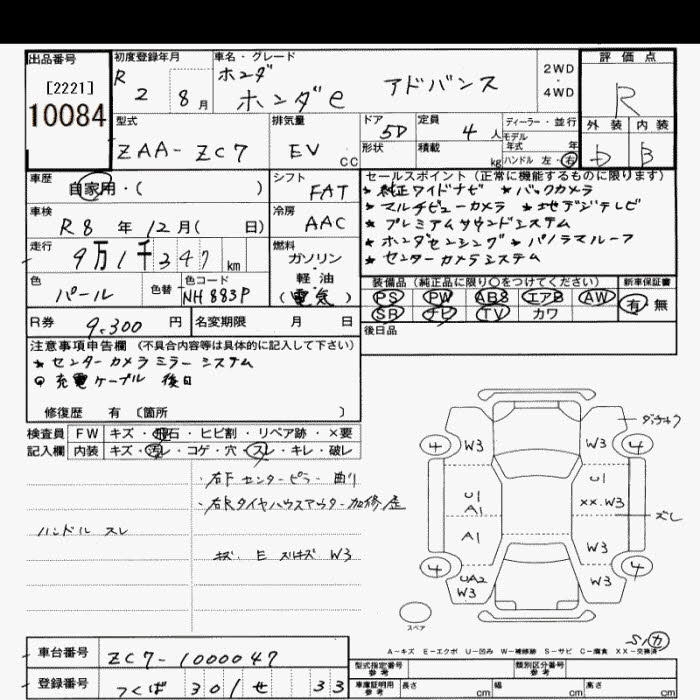 出品番号
[2221]
10084
初度登録年月
R 2 8 月
車名・グレード
ホンダ
ホンダe アドバンス
2WD・4WD
評価点
R
外装 内装
D B
型式
ZAA-ZC7
排気量
EV CC
ドア
5D
形状
定員
4 人
積載
kg
ディーラー・並行
モデル年式 年
ハンドル 左・右
車歴
自家用・( )
シフト
FAT
車検
R8 年 12 月( 日)
冷房
AAC
走行
9万1千347 km
燃料
ガソリン・軽油
(電気)
色
パール
色替
色コード
NH883P
セールスポイント(正常に機能するものに限ります)
★純正ワイドナビ ★バックカメラ
★マルチビューカメラ ★地デジテレビ
★プレミアムサウンドシステム
★ホンダセンシング ★パノラマルーフ
★センターカメラシステム
装備品(純正品に限り○をつけてください)
PS PW ABS エアB AW
SR ナビ TV カワ
新車保証書
有 無
後日品
R券 9,300 円
名変期限 月 日
注意事項申告欄(不具合内容等は具体的に記入して下さい)
★センターカメラミラーシステム
◎充電ケーブル 後日
修復歴 有 〔箇所 〕
検査員記入欄
FW キズ・飛石・ヒビ割・リペア跡・×要
内装 キズ・汚レ・コゲ・穴・スレ・キレ・破レ
・右F センターピラー 曲り
・右Rタイヤハウスアウター加修歴
ハンドル スレ
キズ、E スリキズ W3
4 W3 W3 4
U1 A1
U1 XX.W3
ズレ
A1 W3
4 UA2 W3 W3 4
スペア
A-キズ E-エクボ U-凹み W-補修跡 S-サビ C-腐食 XX-交換済
車台番号 ZC7-1000047
登録番号 つくば 301 せ 33
型式指定番号 参考
類別区分番号 参考
車庫証明用 参考
長さ cm 幅 cm 高さ cm